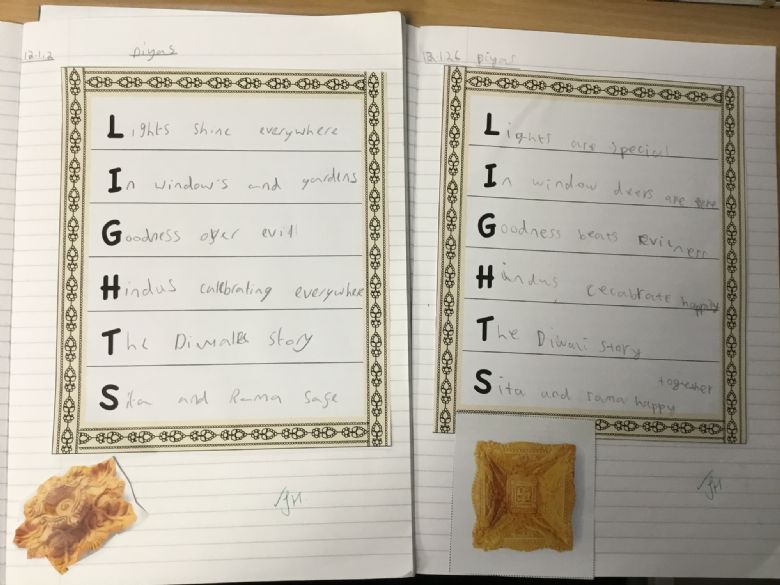 12.1.2
Diyas
Lights shine everywhere
In window's and gardens
Goodness over evill
Hindus calebrating everywhere
The Diwale story
Sita and Rama sage
12.1.26 Diyas
Lights are special
In window deers are
Goodness beats evilness
Hindus cecabrate happily
The Diwali story
together
Sita and rama happy